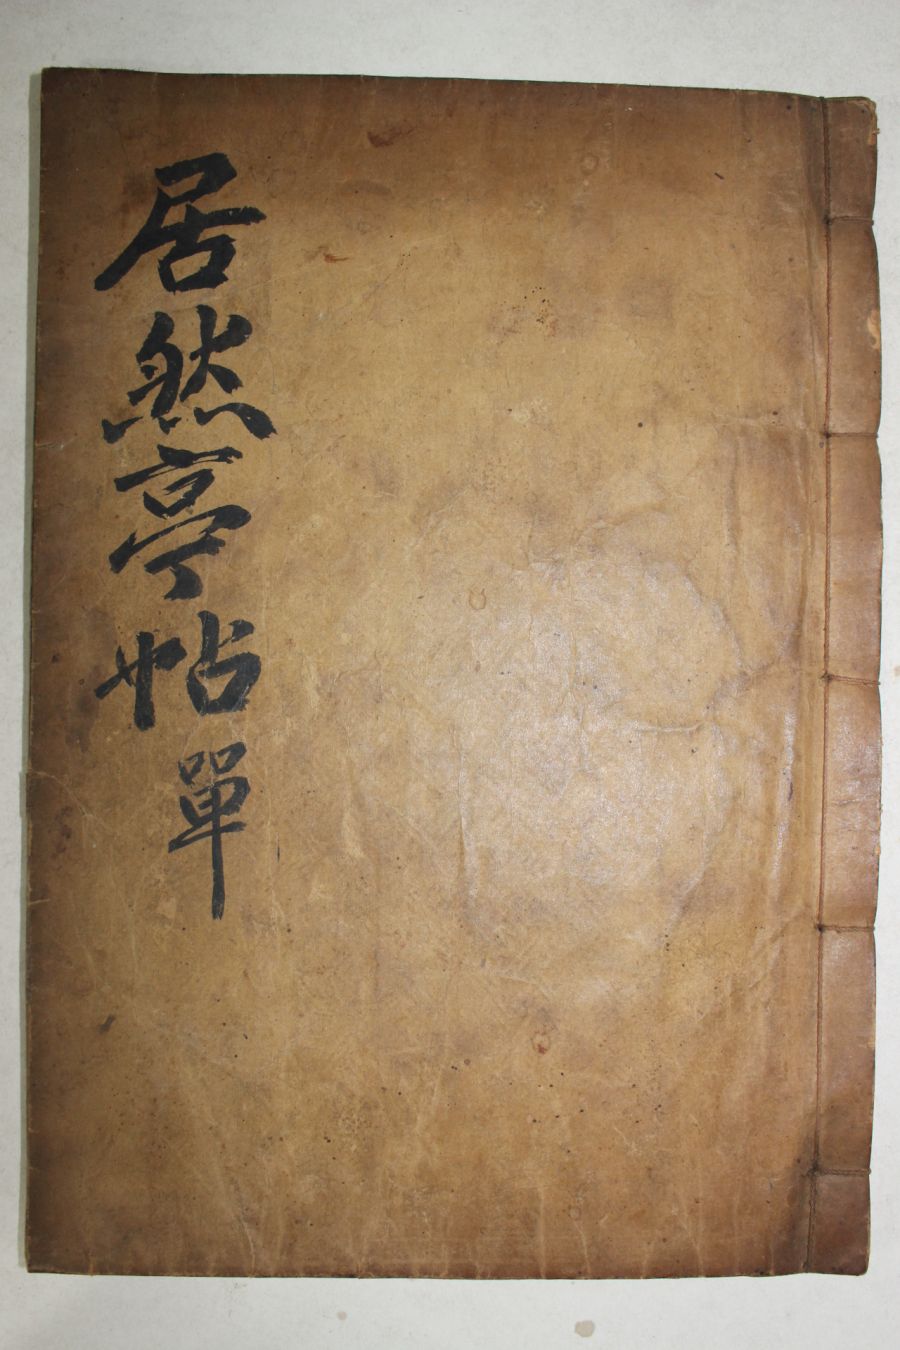 居然亭帖單